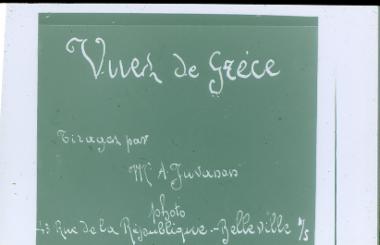 Vues de Grèce
Tirages par
Mr A. Juvanon
photo
43 Rue de la République. - Belleville s/S